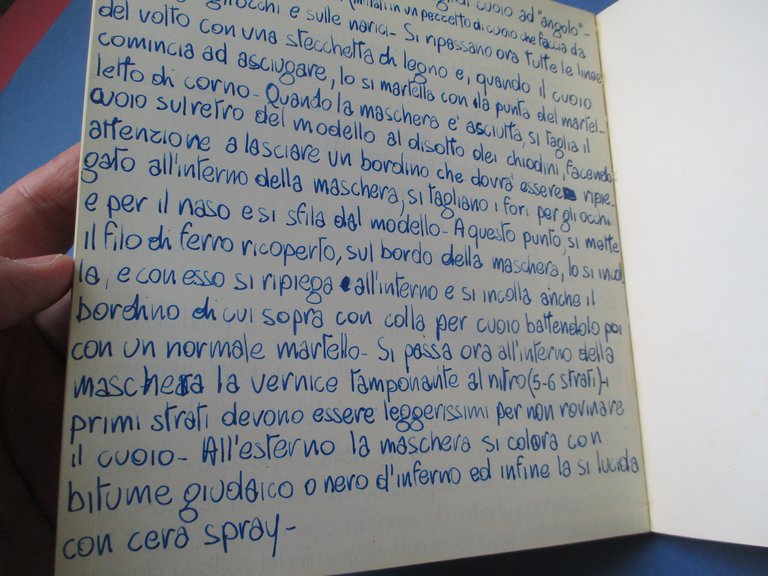 gli occhi e sulle narici- Si ripassano ora tutte le linee
cuoio ad "angolo"-
in un pezzetto di cuoio che faccia da
del volto con una stecchetta di legno e, quando il cuoio
comincia ad asciugare, lo si martella con la punta del martel-
letto di corno- Quando la maschera è asciutta, si taglia il
cuoio sul retro del modello al disotto dei chiodini, facendo
attenzione a lasciare un bordino che dovrà essere ripie-
gato all'interno della maschera, si tagliano i fori per gli occhi
e per il naso e si sfila dal modello- A questo punto, si mette
il filo di ferro ricoperto, sul bordo della maschera, lo si incol
la, e con esso si ripiega all'interno e si incolla anche il
bordino di cui sopra con colla per cuoio battendolo poi
con un normale martello- Si passa ora all'interno della
maschera la vernice tamponante al nitro (5-6 strati)- i
primi strati devono essere leggerissimi per non rovinare
il cuoio- All'esterno la maschera si colora con
bitume giudaico o nero d'inferno ed infine la si lucida
con cera spray-